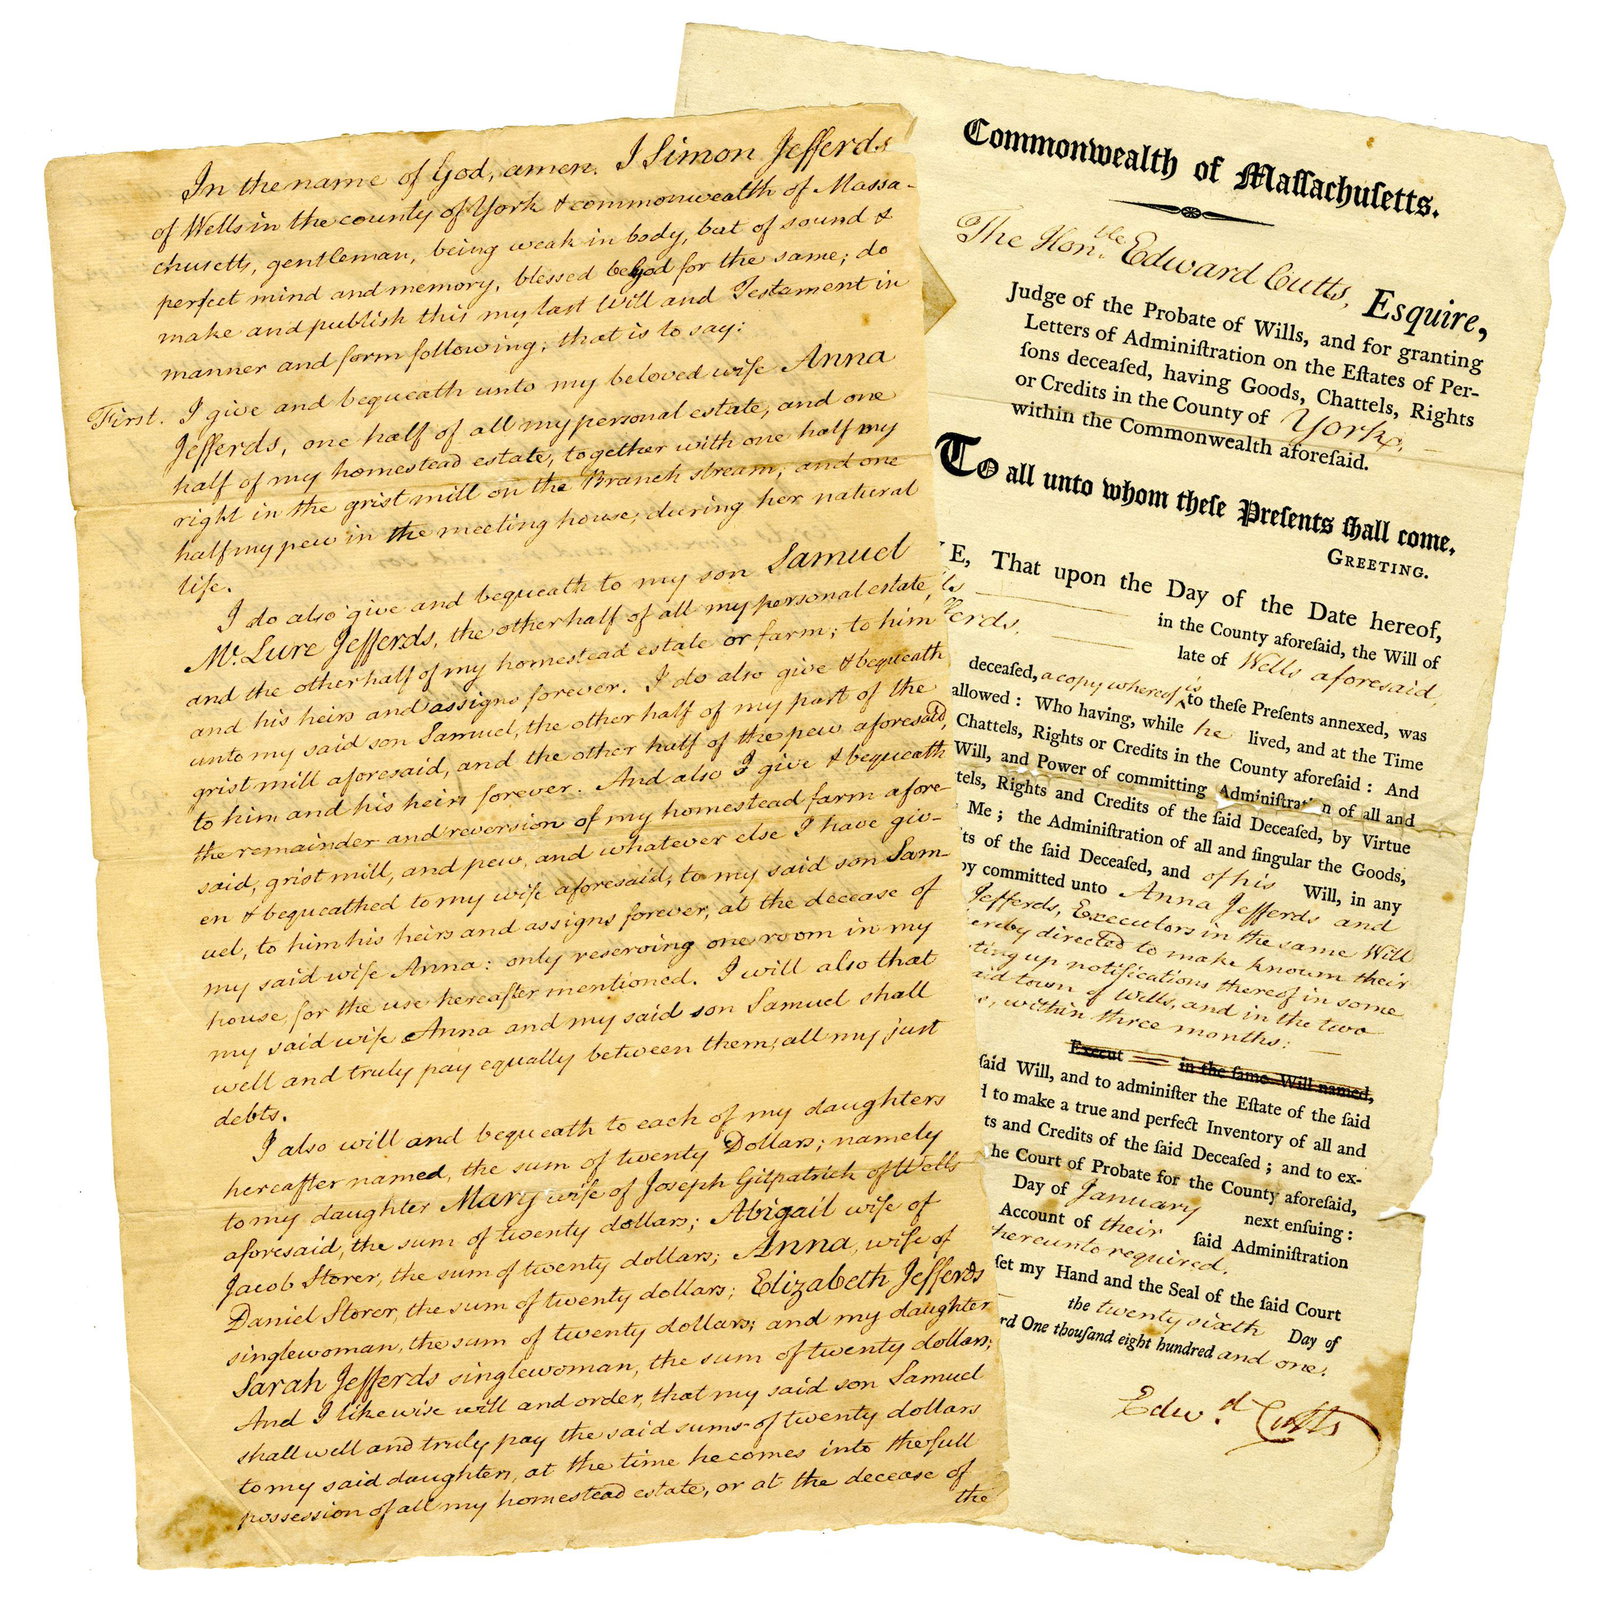 In the name of God, amen. I Simon Jefferds
of Wells in the county of York & commonwealth of Massa-
chusetts, gentleman, being weak in body, but of sound &
perfect mind and memory, blessed be God for the same; do
make and publish this my last Will and Testament in
manner and form following; that is to say:
First. I give and bequeath unto my beloved wife Anna
Jefferds, one half of all my personal estate, and one
half of my homestead estate, together with one half my
right in the grist mill on the Branch stream, and one
half my pew in the meeting house, during her natural
life.
I do also give and bequeath to my son Samuel
Mc. Lure Jefferds, the other half of all my personal estate,
and the other half of my homestead estate or farm; to him
and his heirs and assigns forever. I do also give & bequeath
unto my said son Samuel, the other half of my part of the
grist mill aforesaid, and the other half of the pew aforesaid,
to him and his heirs forever. And also I give & bequeath
the remainder and reversion of my homestead farm afore-
said, grist mill, and pew, and whatever else I have giv-
en & bequeathed to my wife aforesaid, to my said son Sam-
uel, to him his heirs and assigns forever, at the decease of
my said wife Anna: only reserving one room in my
house, for the use hereafter mentioned. I will also that
my said wife Anna and my said son Samuel shall
well and truly pay equally between them, all my just
debts.
I also will and bequeath to each of my daughters
hereafter named, the sum of twenty Dollars; namely
to my daughter Mary wife of Joseph Gilpatrick of Wells
aforesaid, the sum of twenty dollars; Abigail wife of
Jacob Storer, the sum of twenty dollars; Anna, wife of
Daniel Storer, the sum of twenty dollars; Elizabeth Jefferds
singlewoman, the sum of twenty dollars; and my daughter
Sarah Jefferds singlewoman, the sum of twenty dollars;
And I likewise will and order, that my said son Samuel
shall well and truly pay the said sums of twenty dollars
to my said daughters, at the time he comes into the full
possession of all my homestead estate, or at the decease of
the
Commonwealth of Maſſachuſetts.
The Honble. Edward Cutts, Esquire,
Judge of the Probate of Wills, and for granting
Letters of Adminiſtration on the Eſtates of Per-
ſons deceaſed, having Goods, Chattels, Rights
or Credits in the County of York,
within the Commonwealth aforeſaid.
To all unto whom theſe Preſents ſhall come.
GREETING.
E, That upon the Day of the Date hereof,
in the County aforeſaid, the Will of
erds, late of Wells aforesaid,
deceaſed, a copy whereof is to theſe Preſents annexed, was
allowed: Who having, while he lived, and at the Time
Chattels, Rights or Credits in the County aforeſaid: And
Will, and Power of committing Adminiſtration of all and
tels, Rights and Credits of the ſaid Deceaſed, by Virtue
Me; the Adminiſtration of all and ſingular the Goods,
ts of the ſaid Deceaſed, and of his Will, in any
by committed unto Anna Jefferds and
Jefferds, Executors in the same Will
ereby directed to make known their
ting up notifications thereof in some
aid town of Wells, and in the two
s, within three months:
Execut in the ſame Will named,
ſaid Will, and to adminiſter the Eſtate of the ſaid
d to make a true and perfect Inventory of all and
ts and Credits of the ſaid Deceaſed; and to ex-
he Court of Probate for the County aforeſaid,
Day of January next enſuing:
Account of their ſaid Adminiſtration
thereunto required.
ſet my Hand and the Seal of the ſaid Court
the twenty sixth Day of
rd One thouſand eight hundred and one.
Edwd. Cutts